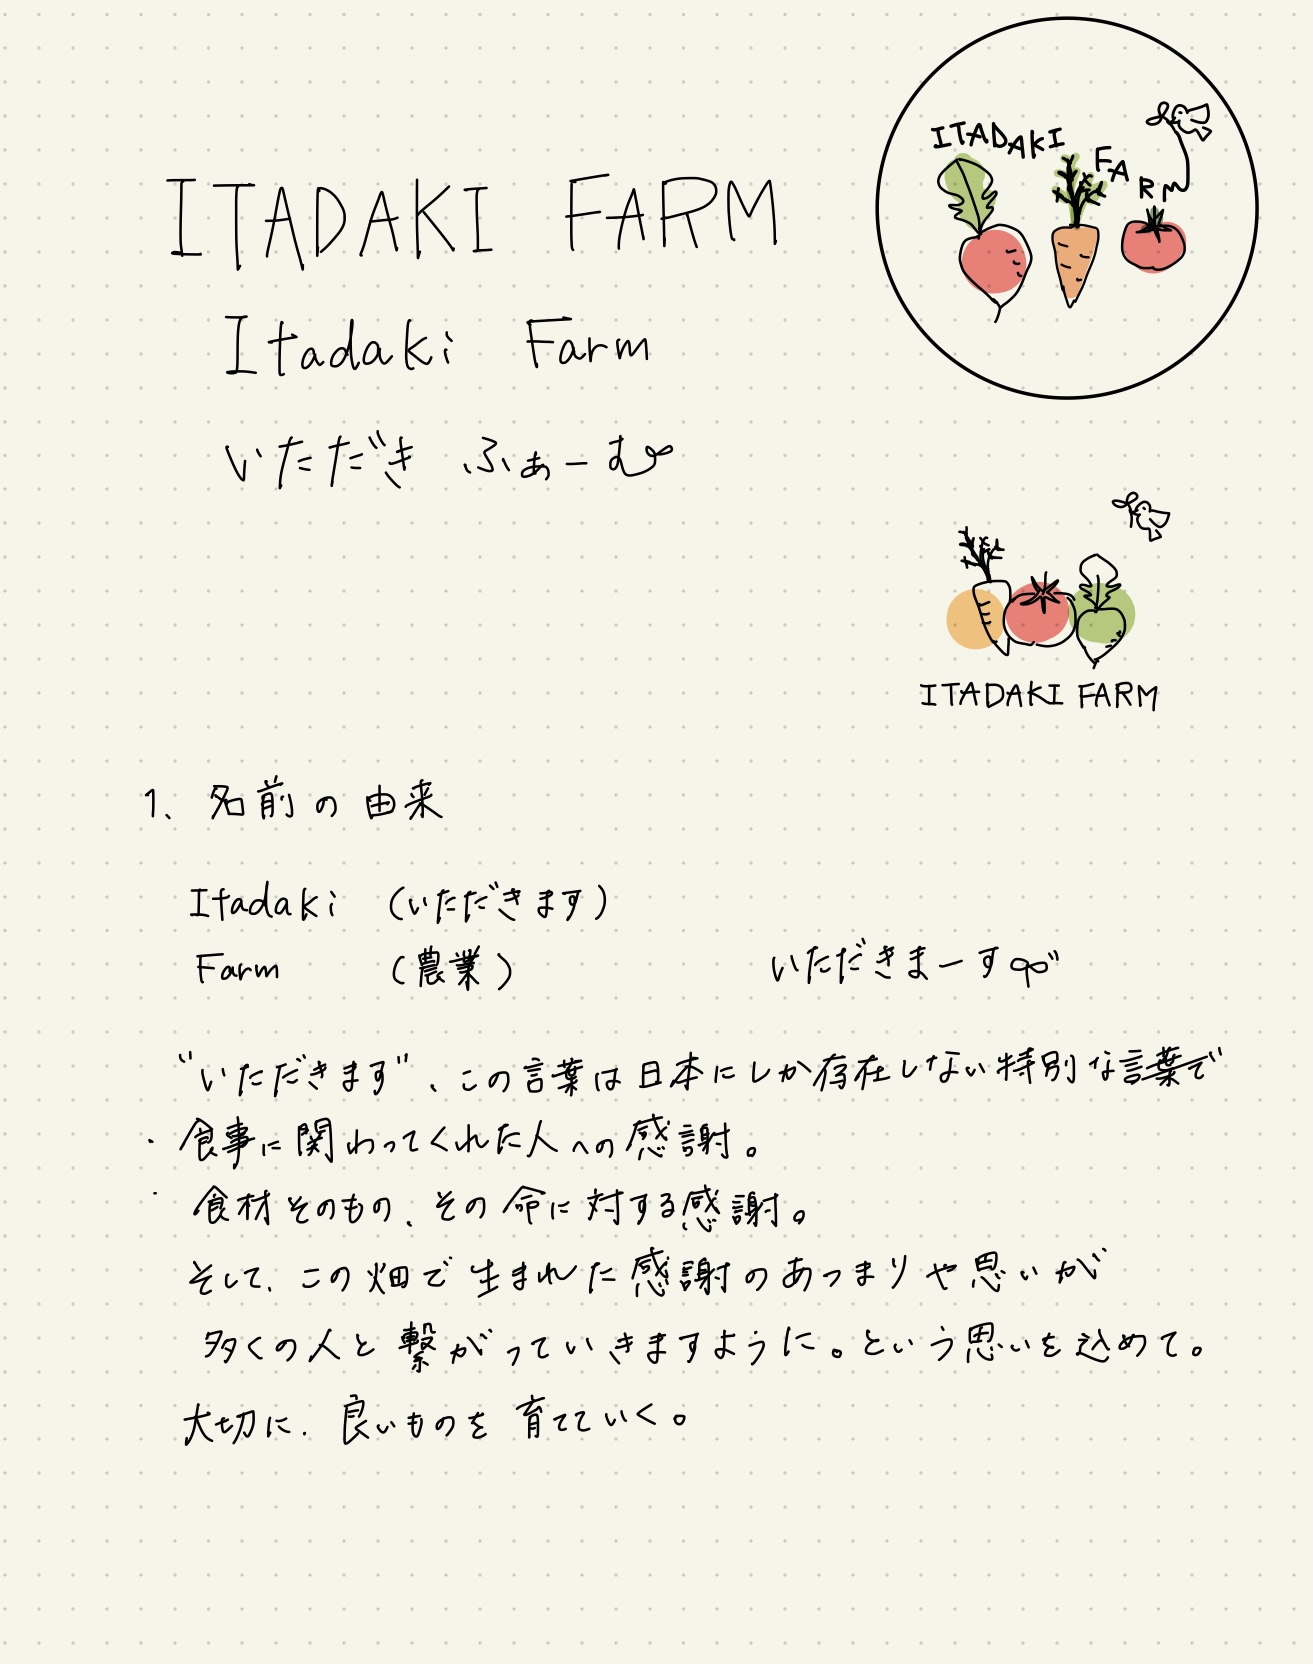 ITADAKI FARM
ITADAKI FARM
Itadaki Farm
いただき ふぁーむ
ITADAKI FARM
1、名前の由来
Itadaki （いただきます）
Farm （農業）
いただきまーす
"いただきます"、この言葉は日本にしか存在しない特別な言葉で
・食事に関わってくれた人への感謝。
・食材そのもの、その命に対する感謝。
そして、この畑で生まれた感謝のあつまりや思いが
多くの人と繋がっていきますように。という思いを込めて。
大切に、良いものを育てていく。